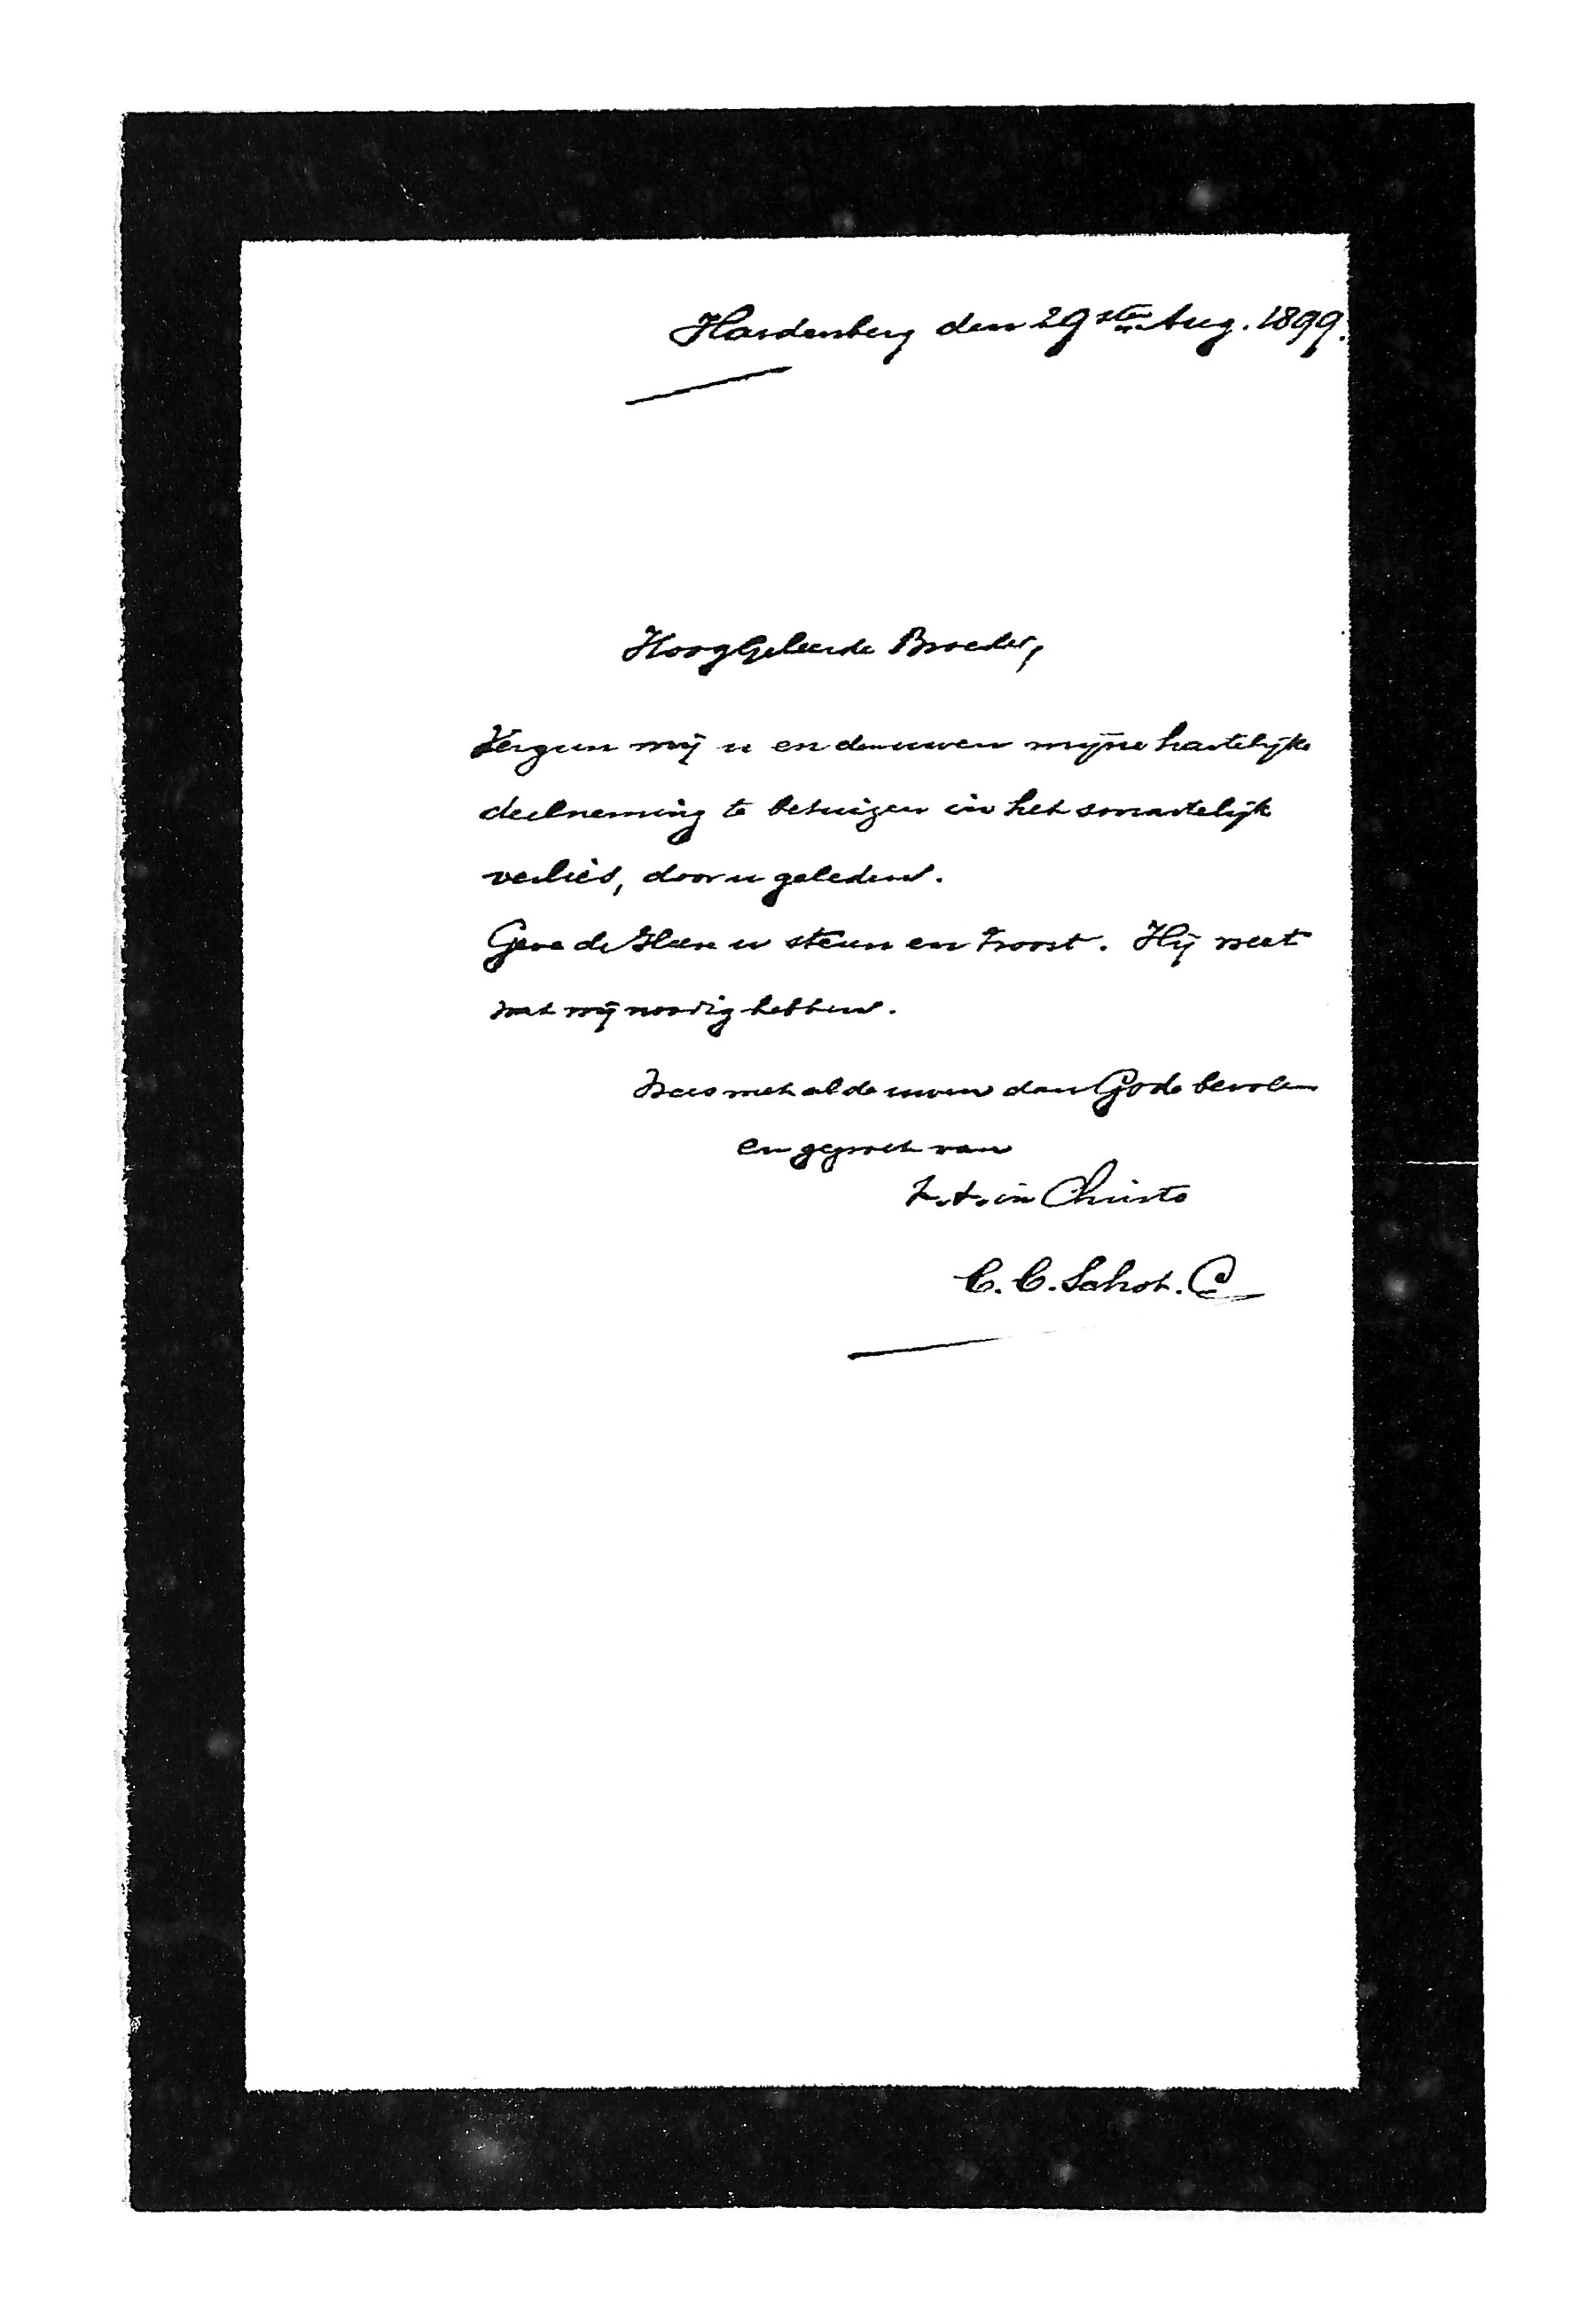 Hardenberg den 29sten Aug. 1899.
HoogGeleerde Broeder,
Vergun mij u en den uwen mijne hartelijke
deelneming te betuigen in het smartelijk
verlies, door u geleden.
Geve de Heere u steun en troost. Hij weet
wat wij noodig hebben.
Wees met al de uwen dan Gode bevolen
en gegroet van
t. t. in Christo
C. C. Schot. C